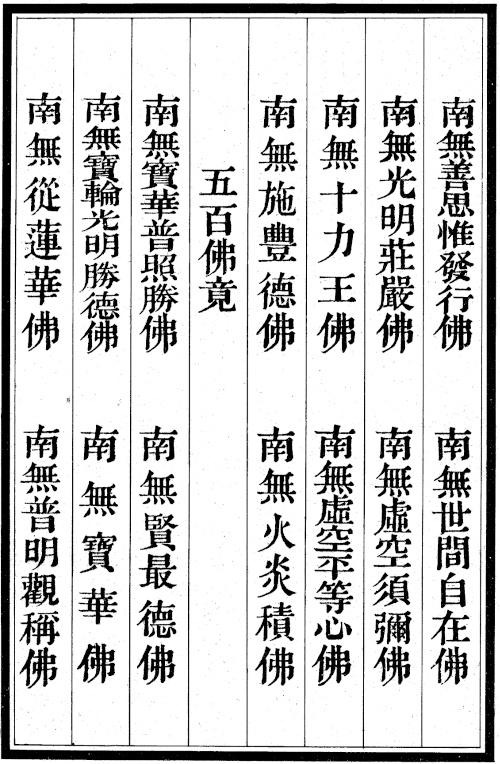 南無善思惟發行佛　南無世間自在佛
南無光明莊嚴佛　南無虛空須彌佛
南無十力王佛　南無虛空平等心佛
南無施豐德佛　南無火炎積佛
五百佛竟
南無寶華普照勝佛　南無賢最德佛
南無寶輪光明勝德佛　南無寶華佛
南無從蓮華佛　南無普明觀稱佛